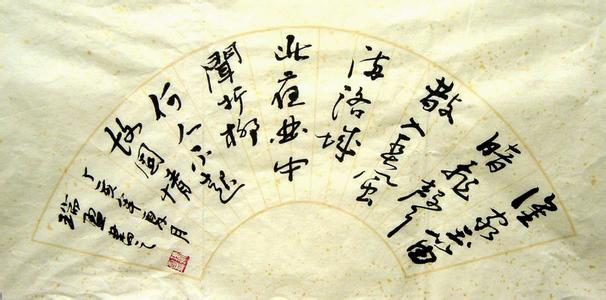 谁家玉笛
暗飛聲
散入春風
满洛城
此夜曲中
聞折柳
何人不起
故園情
丁亥年夏月